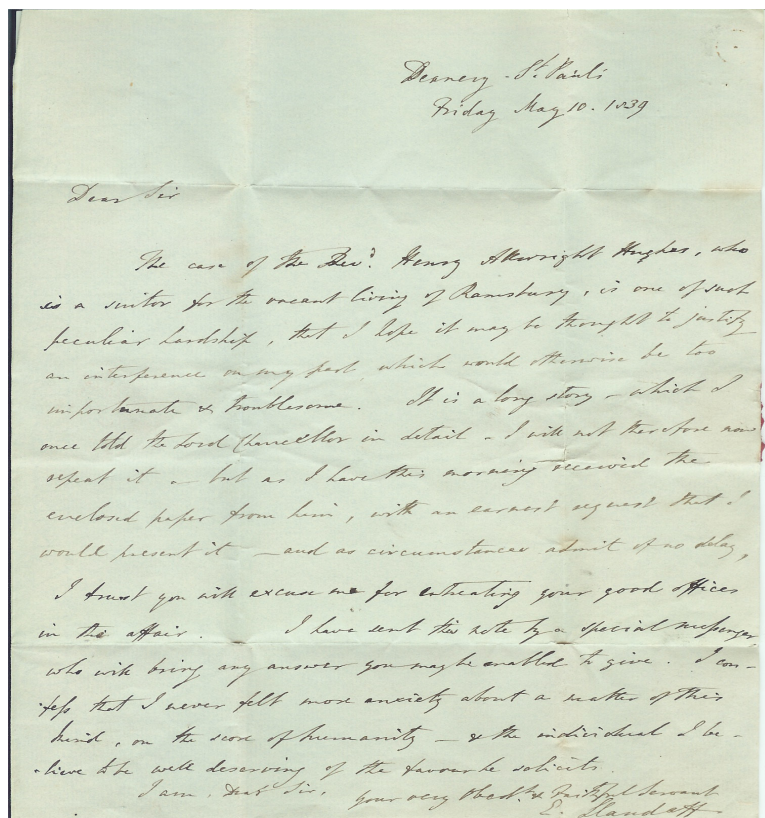 Deanery - St. Paul's
Friday May 10. 1839
Dear Sir
The case of the Revd. Henry Arkwright Hughes, who
is a suitor for the vacant living of Ramsbury, is one of such
peculiar hardship, that I hope it may be thought to justify
an interference on my part, which would otherwise be too
importunate & troublesome. It is a long story - which I
once told the Lord Chancellor in detail - I will not therefore now
repeat it - but as I have this morning received the
enclosed paper from him, with an earnest request that I
would present it - and as circumstances admit of no delay,
I trust you will excuse me for entreating your good offices
in this affair. I have sent this note by a special messenger,
who will bring any answer you may be enabled to give. I con-
-fess that I never felt more anxiety about a matter of this
kind, on the score of humanity - & the individual I be-
-lieve to be well deserving of the favour he solicits.
I am, Dear Sir, your very Obedt. & Faithful Servant
E. Llandaff